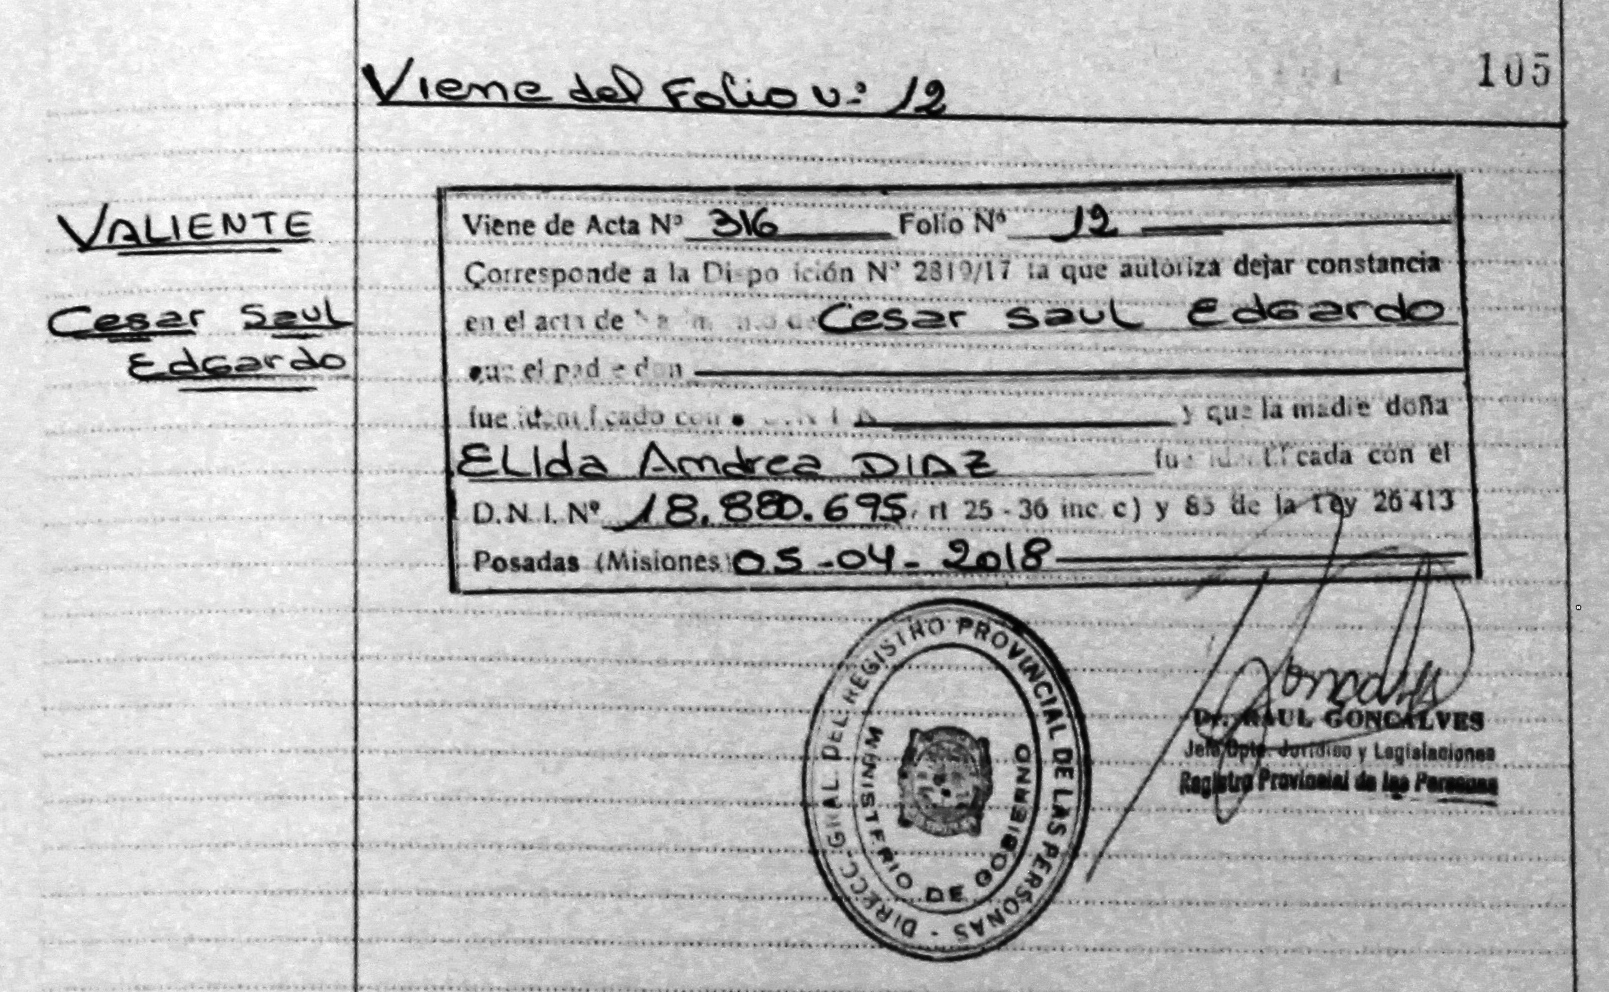 105
Viene del Folio nº 12
VALIENTE
Cesar Saul
Edgardo
Viene de Acta Nº 316 Folio Nº 12
Corresponde a la Disposición Nº 2819/17 la que autoriza dejar constancia
en el acta de Cesar Saul Edgardo
que el padre don
fue identificado con y que la madre doña
ELIda Andrea DIAZ fue identificada con el
D.N.I. Nº 18.880.695. rt 25 - 36 inc. c) y 85 de la Ley 26413
Posadas (Misiones) 05-04-2018
DIRECC. GRAL DEL REGISTRO PROVINCIAL DE LAS PERSONAS -
MINISTERIO DE GOBIERNO
Dr. RAUL GONCALVES
Jefe Dpto. Jurídico y Legislaciones
Registro Provincial de las Personas